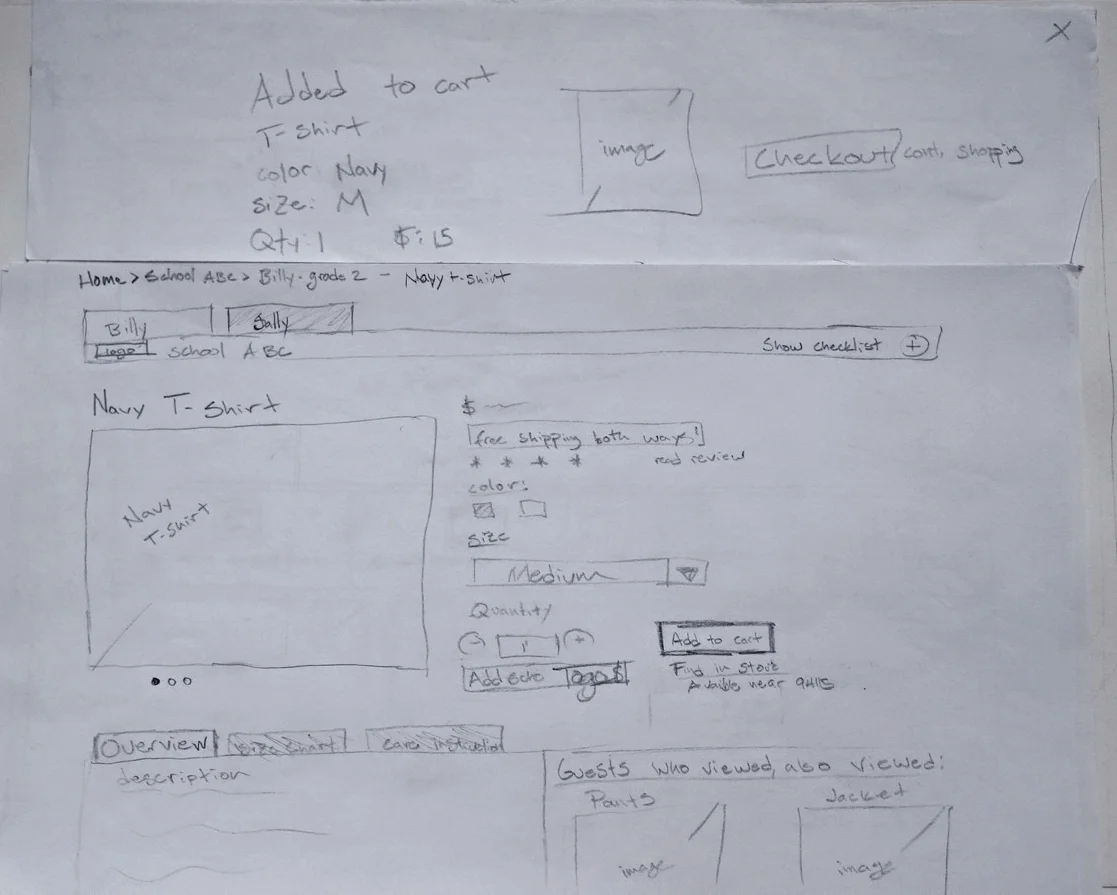 X
Added to cart
T-Shirt
color: Navy
size: M
Qty: 1 $: 15
image
Checkout / cont. shopping
Home > School ABC > Billy-grade 2 - Navy t-shirt
Billy
Sally
logo School ABC
Show checklist +
Navy T-Shirt
Navy
T-Shirt
$
free shipping both ways!
* * * * read review
color:
size
Medium
Quantity
- 1 +
Add to cart
Find in store
near 94115
Overview
Size chart
care
description
Guests who viewed, also viewed:
Pants
Jacket
image
image